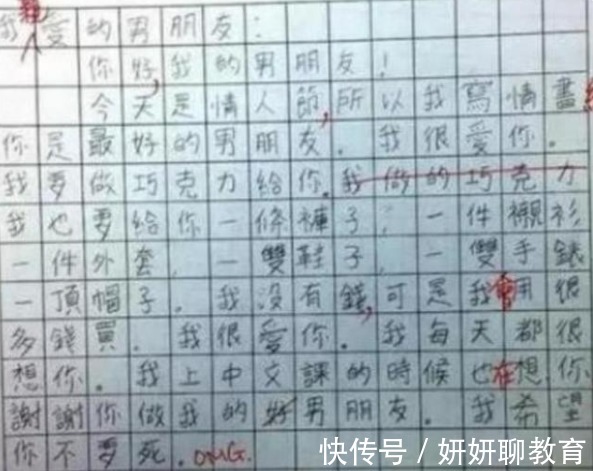 我親愛的男朋友：
你好,我的男朋友！
今天是情人節,所以我寫情書給
你是最好的男朋友．我很愛你．
我要做巧克力給你．我做的巧克力
我也要給你一條褲子，一件襯衫
一件外套，一雙鞋子，一雙手錶
一頂帽子．我沒有錢,可是我會用很
多錢買．我很愛你．我每天都很
想你．我上中文課的時候也在想你
謝謝你做我的好男朋友．我希望
你不要死．OMG.
快传号／妍妍聊教育